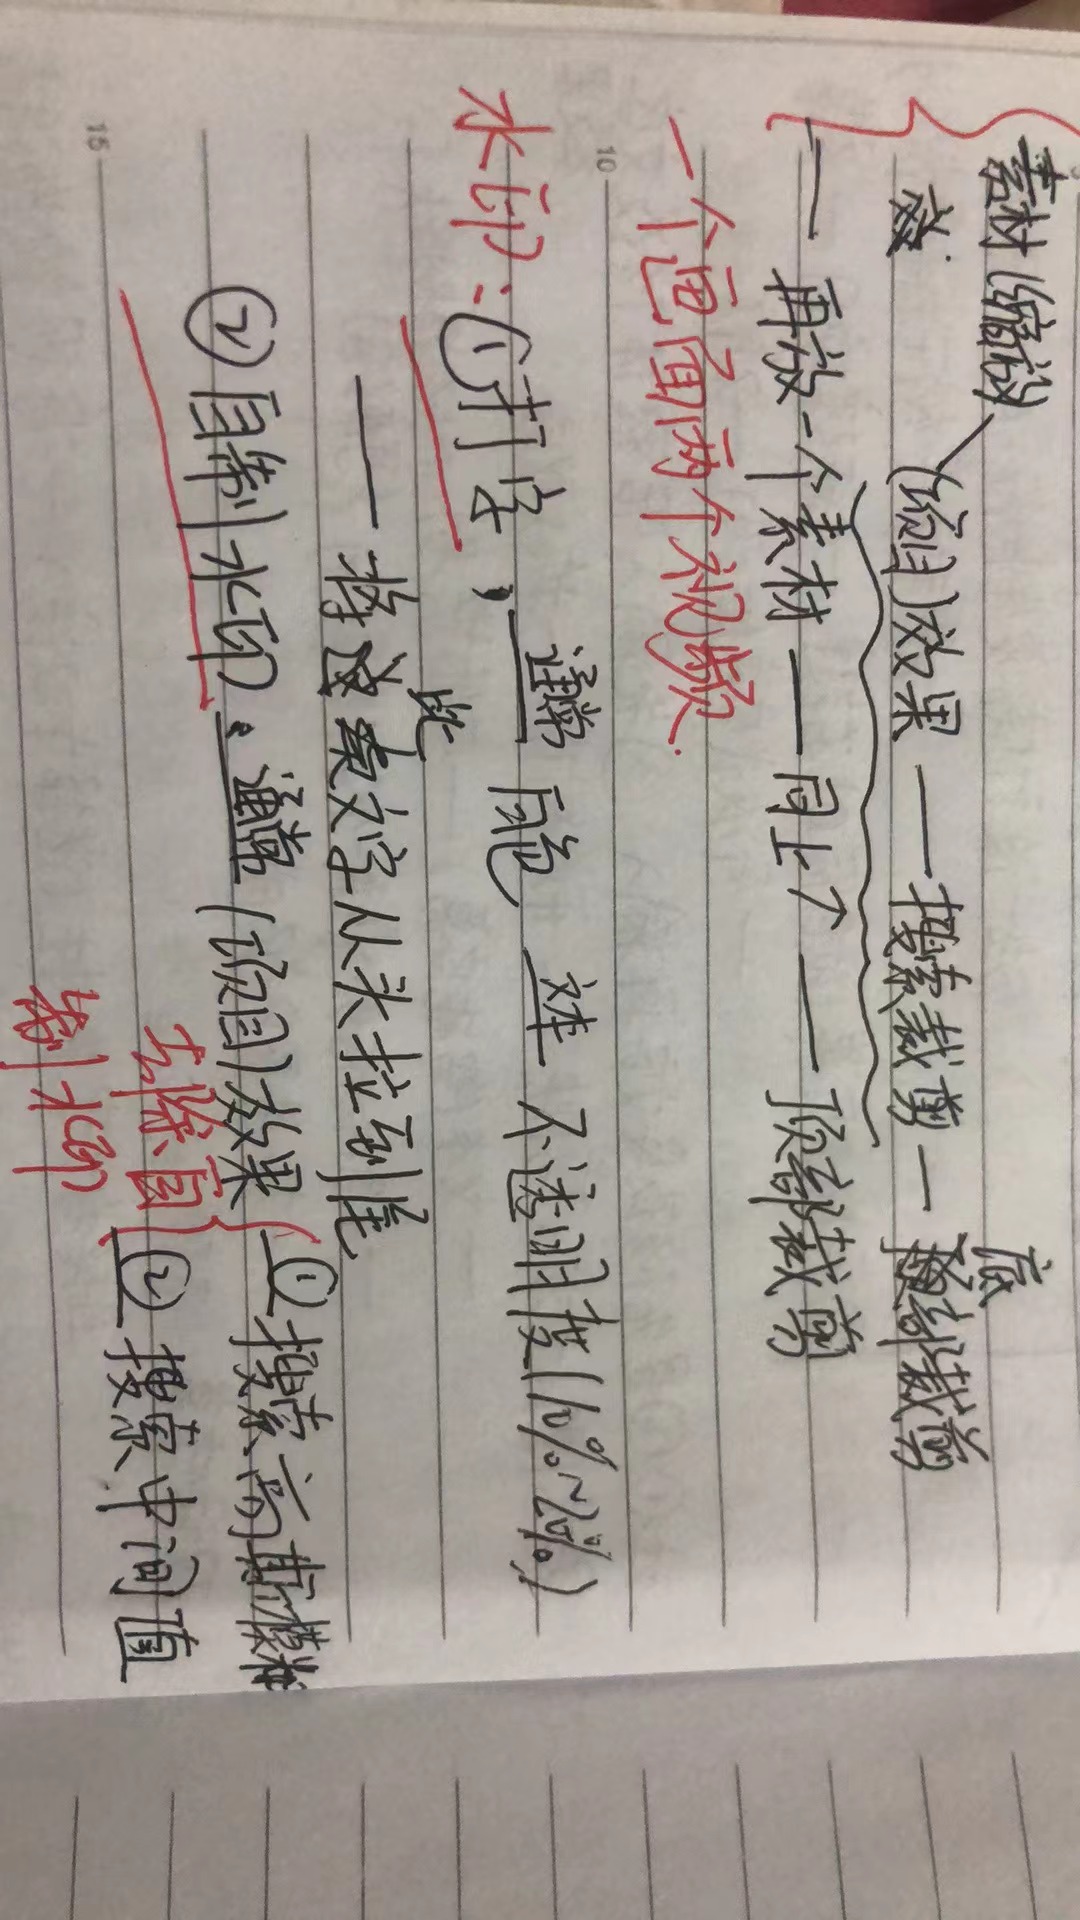 素材缩放
效果——搜索裁剪——底部裁剪
一 再放一个素材——同上↗——顶部裁剪
一个画面两个视频.
10
水印:①打字, 通常 白色 文本 不透明度(10%~20%)
——将此文字从头拉到尾
②自制水印。通常 效果 ①搜索高斯模糊
去除自制水印 ②搜索中间值
15